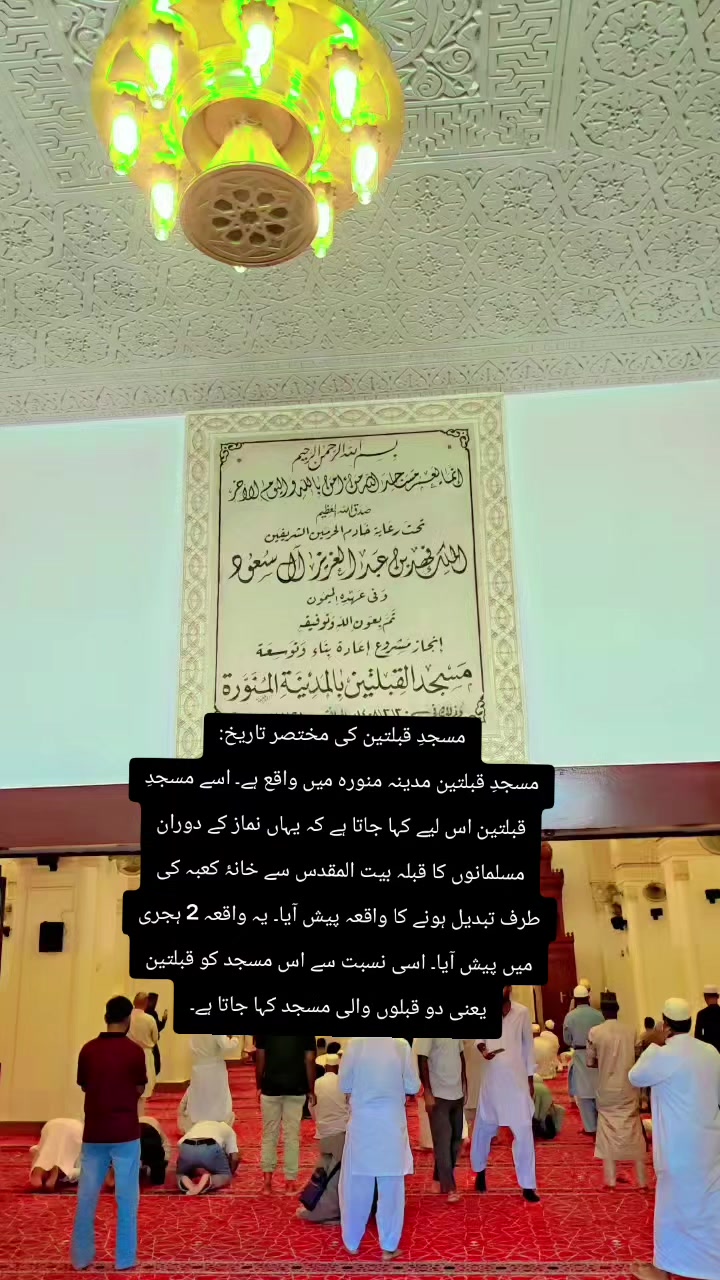 بسم الله الرحمن الرحيم
إنما يعمر مساجد الله من آمن بالله واليوم الآخر
صدق الله العظيم
تحت رعاية خادم الحرمين الشريفين
الملك فهد بن عبد العزيز آل سعود
وفي عهده الميمون
تم بعون الله وتوفيقه
إنجاز مشروع إعادة بناء وتوسعة
مسجد القبلتين بالمدينة المنورة
مسجدِ قبلتین کی مختصر تاریخ:
مسجدِ قبلتین مدینہ منورہ میں واقع ہے۔ اسے مسجدِ
قبلتین اس لیے کہا جاتا ہے کہ یہاں نماز کے دوران
مسلمانوں کا قبلہ بیت المقدس سے خانۂ کعبہ کی
طرف تبدیل ہونے کا واقعہ پیش آیا۔ یہ واقعہ 2 ہجری
میں پیش آیا۔ اسی نسبت سے اس مسجد کو قبلتین
یعنی دو قبلوں والی مسجد کہا جاتا ہے۔